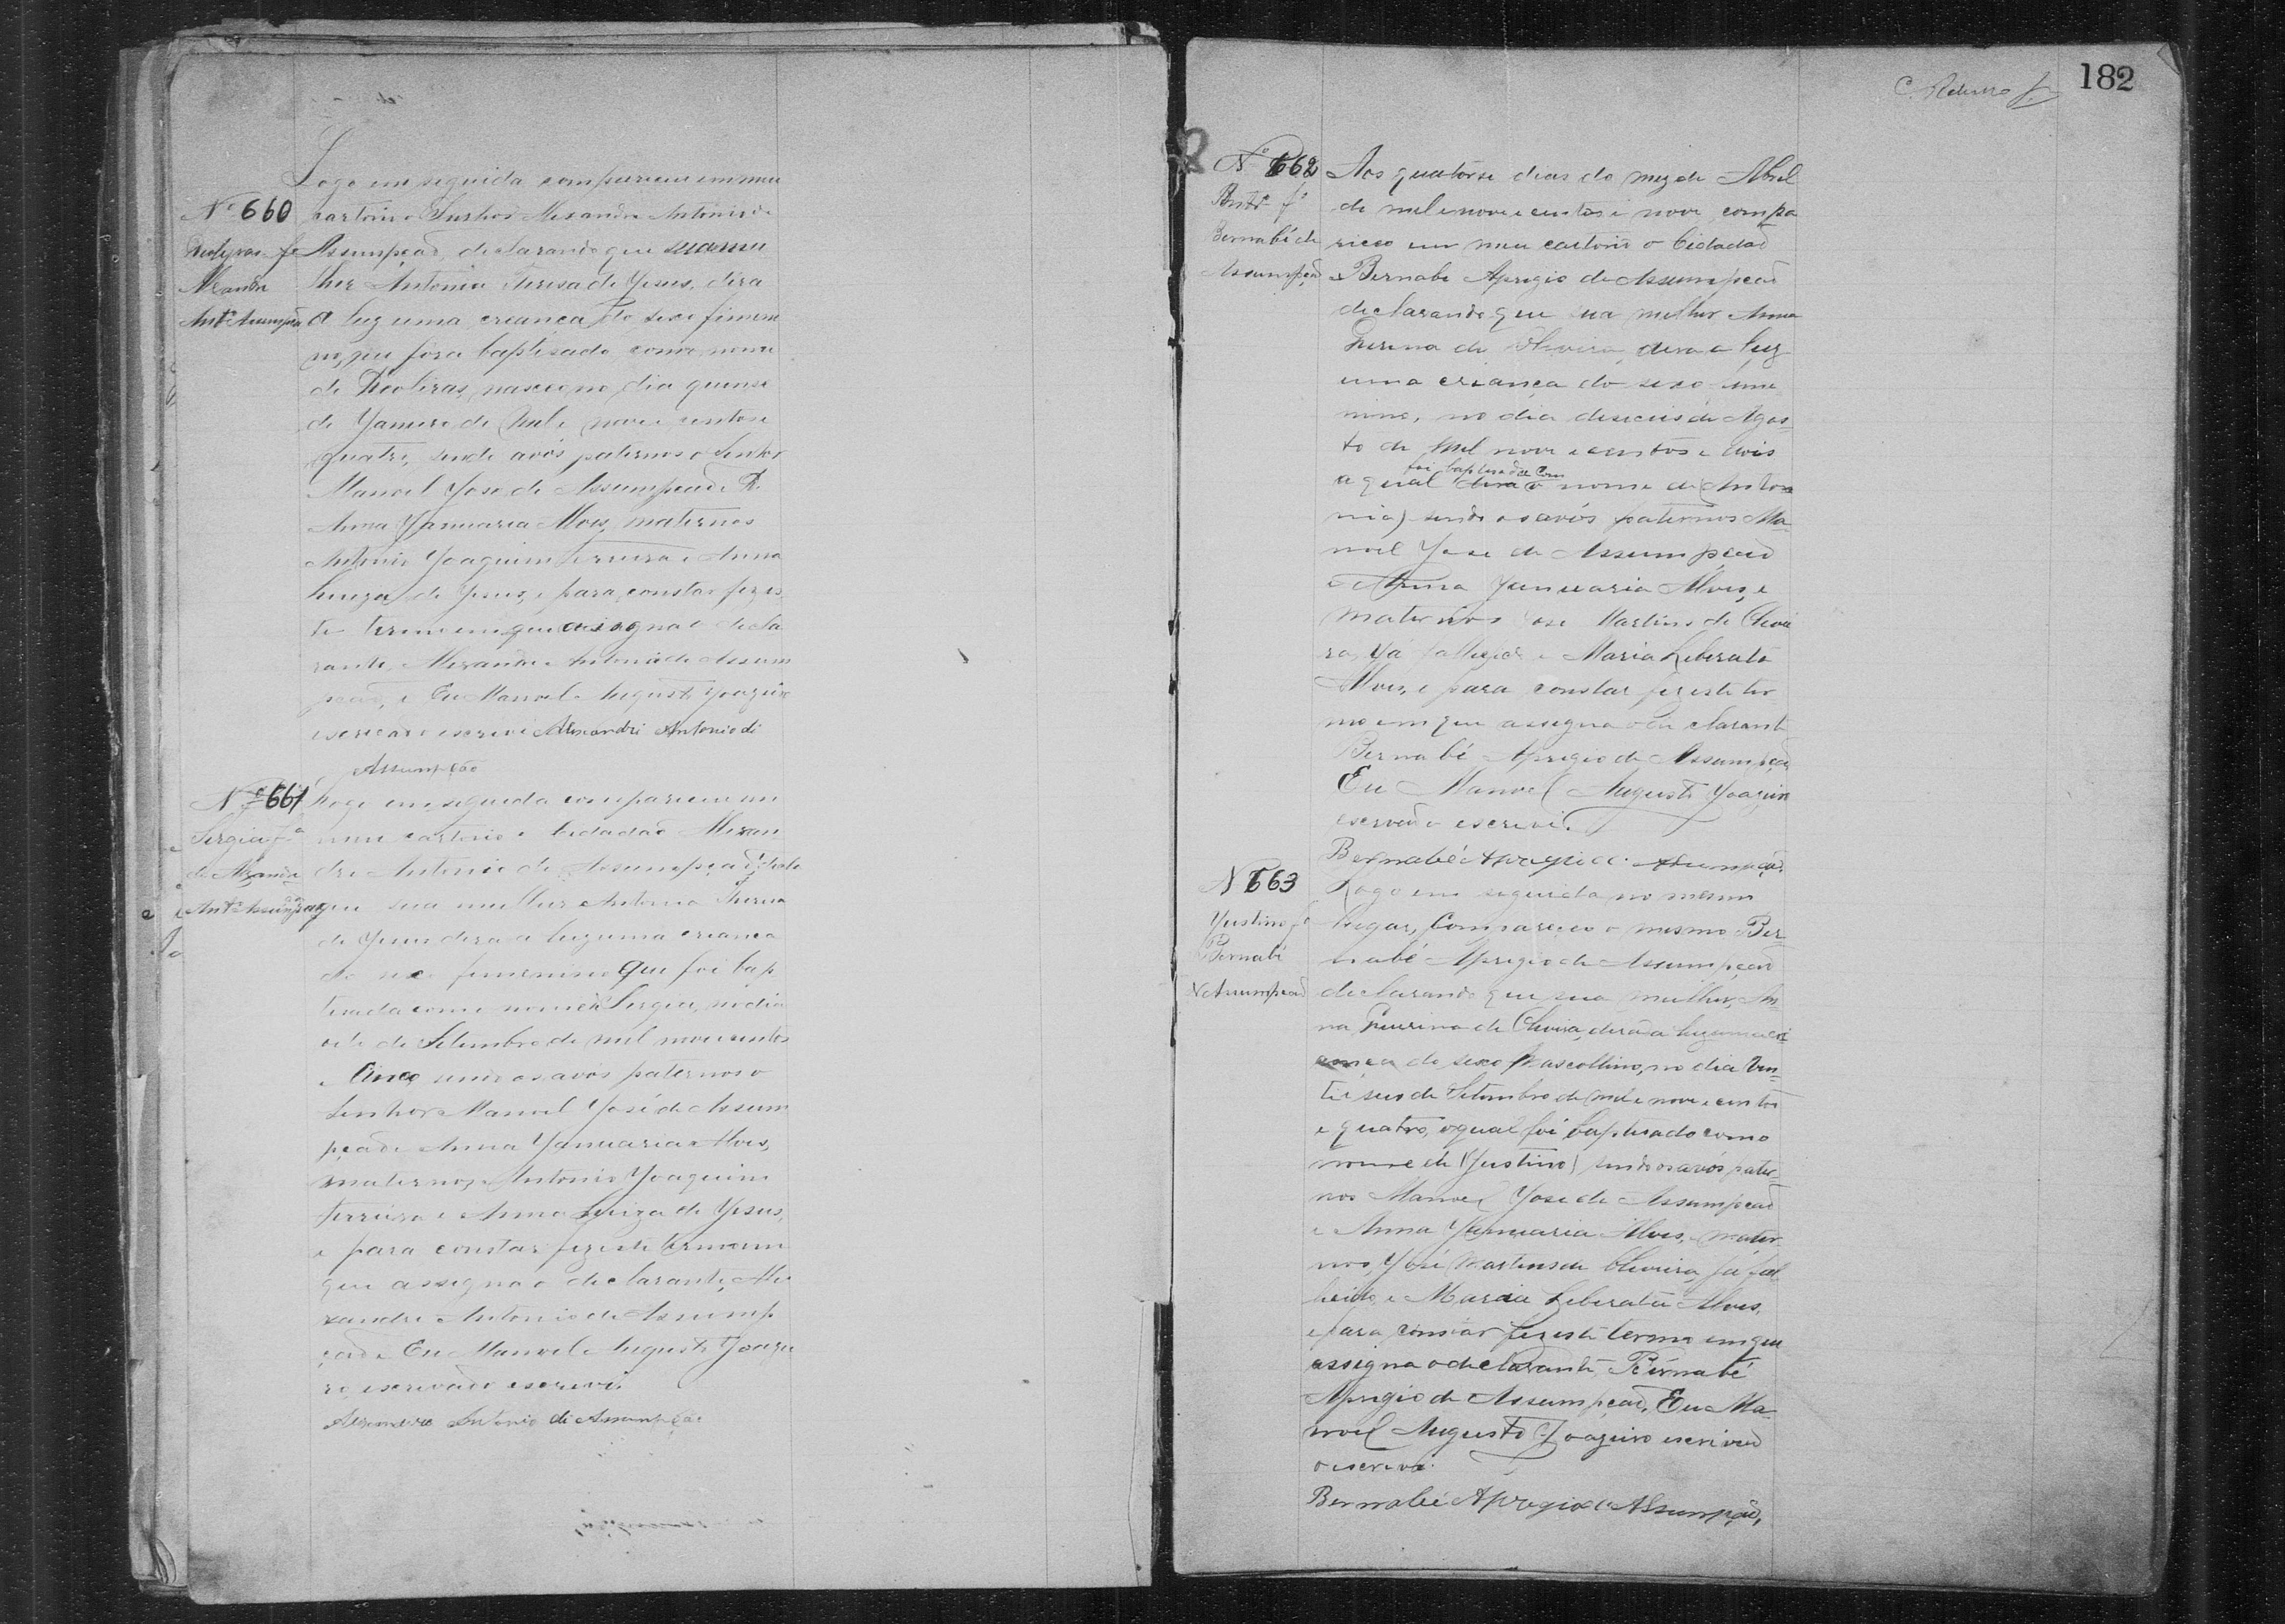 Logo em seguida compareceu em meu
Nº 660
cartorio o Senhor Alexandre Antonio de
Assumpção, declarando que sua mu
Alexandre
lher Antonia Teresa de Yesus, dera
Antº Assumpção
a luz uma creança do sexo femeni
no, que fora baptisada com o nome
de nasceo no dia quinse
de Yaneiro de mil e nove centos e
quatro, sendo avós paternos o Senhor
Manoel Yose de Assumpção e D.
Anna Yanuaria Alves, maternos
Antonio Yoaquim Ferreira e Anna
Luiza de Yesus, e para constar fiz es
te termo em que assigna o decla
rante, Alexandre Antonio de Assum
pção, e Eu Manoel Augusto Yoazeiro
escrivão o escrevi Alexandri Antonio di
Assumpção
Nº 661
Logo em seguida compareceu em
Sergia fª
meu cartorio o Cidadão Alexan
de Alexandre
dre Antonio de Assumpção,
Antº Assumpção
que sua mulher Antonia Theresa
de Yesus dera a luz uma creança
do sexo femenino que foi bap
tisada com o nome de Sergia, no dia
oito de Setembro de mil novecentos
e Cinco sendo os avós paternos o
Senhor Manoel Yosé de Assum
pção e Anna Yanuaria Alves,
maternos, Antonio Yoaquim
Ferreira e Anna Luiza de Yesus,
e para constar fiz este termo em
que assigna o declarante, Ale
xandre Antonio de Assump
ção e Eu Manoel Augusto Yoazei
ro, escrivão o escrevi.
Alexandre Antonio di Assumpção
182
Nº 662
Aos quatorse dias do mez de Abril
Antª fª
de mil e nove e centos e nove compa
Bernabé de
riceo em meu cartorio o Cidadão
Assumpção
Bernabe Aprigio de Assumpção
declarando que sua mulher Anna
de Oliveira, dera a luz
uma criança do sexo
nino, no dia deseceis de Agos-
to de mil nove e centos e dois
foi baptisada com
a qual dera o nome de (Anto
nia) sendo os avós paternos Ma-
noel Yose de Assumpção
e Anna Yanuaria Alves, e
maternos Yose Martins de Olivei
ra, Ya fallecido e Maria Liberata
Alves, e para constar fiz este ter
mo em que assigna o declarante
Bernabé Aprigio de Assumpção
Eu Manoel Augusto Yoazeiro
escrivão o escrevi.
Bernabé Aprigio de Assumpção.
Nº 663
Logo em seguida no mesmo
Yustino fº
lugar, Compareceo o mesmo Ber-
Bernabé
nabé Aprigio de Assumpção
Assumpção
declarando que sua mulher, An-
na de Oliveira, dera a luz uma cri
ança do sexo Mascollino, no dia Vin-
te e seis de Setembro de mil e nove e centos
e quatro, o qual foi baptisado com o
nome de (Yustino) sendo os avós pater-
nos Manoel Yose de Assumpção
e Anna Yanuaria Alves, mater
nos, Yosé Martins de Oliveira, já fal-
lecido, e Maria Liberata Alves,
e para constar fiz este termo em que
assigna o declarante Bernabé
Aprigio de Assumpção, Eu Ma-
noel Augusto Yoazeiro escrivão
o escrevi.
Bernabé Aprigio de Assumpção,